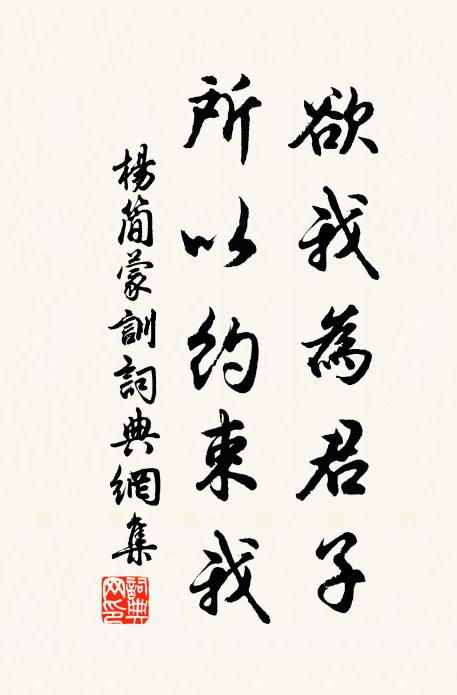 欲我為君子
所以約束我
楊簡蒙訓詞典網集
詞典
网印